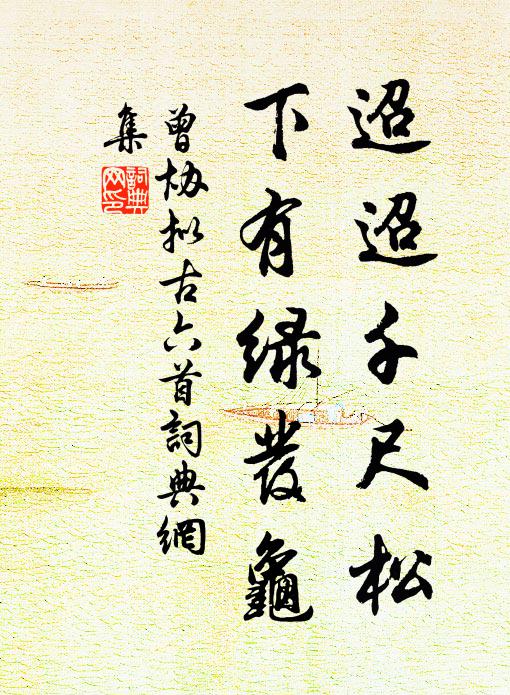 迢迢千尺松
下有緑发龜
曾协拟古六首詞典網
集
詞典
网印